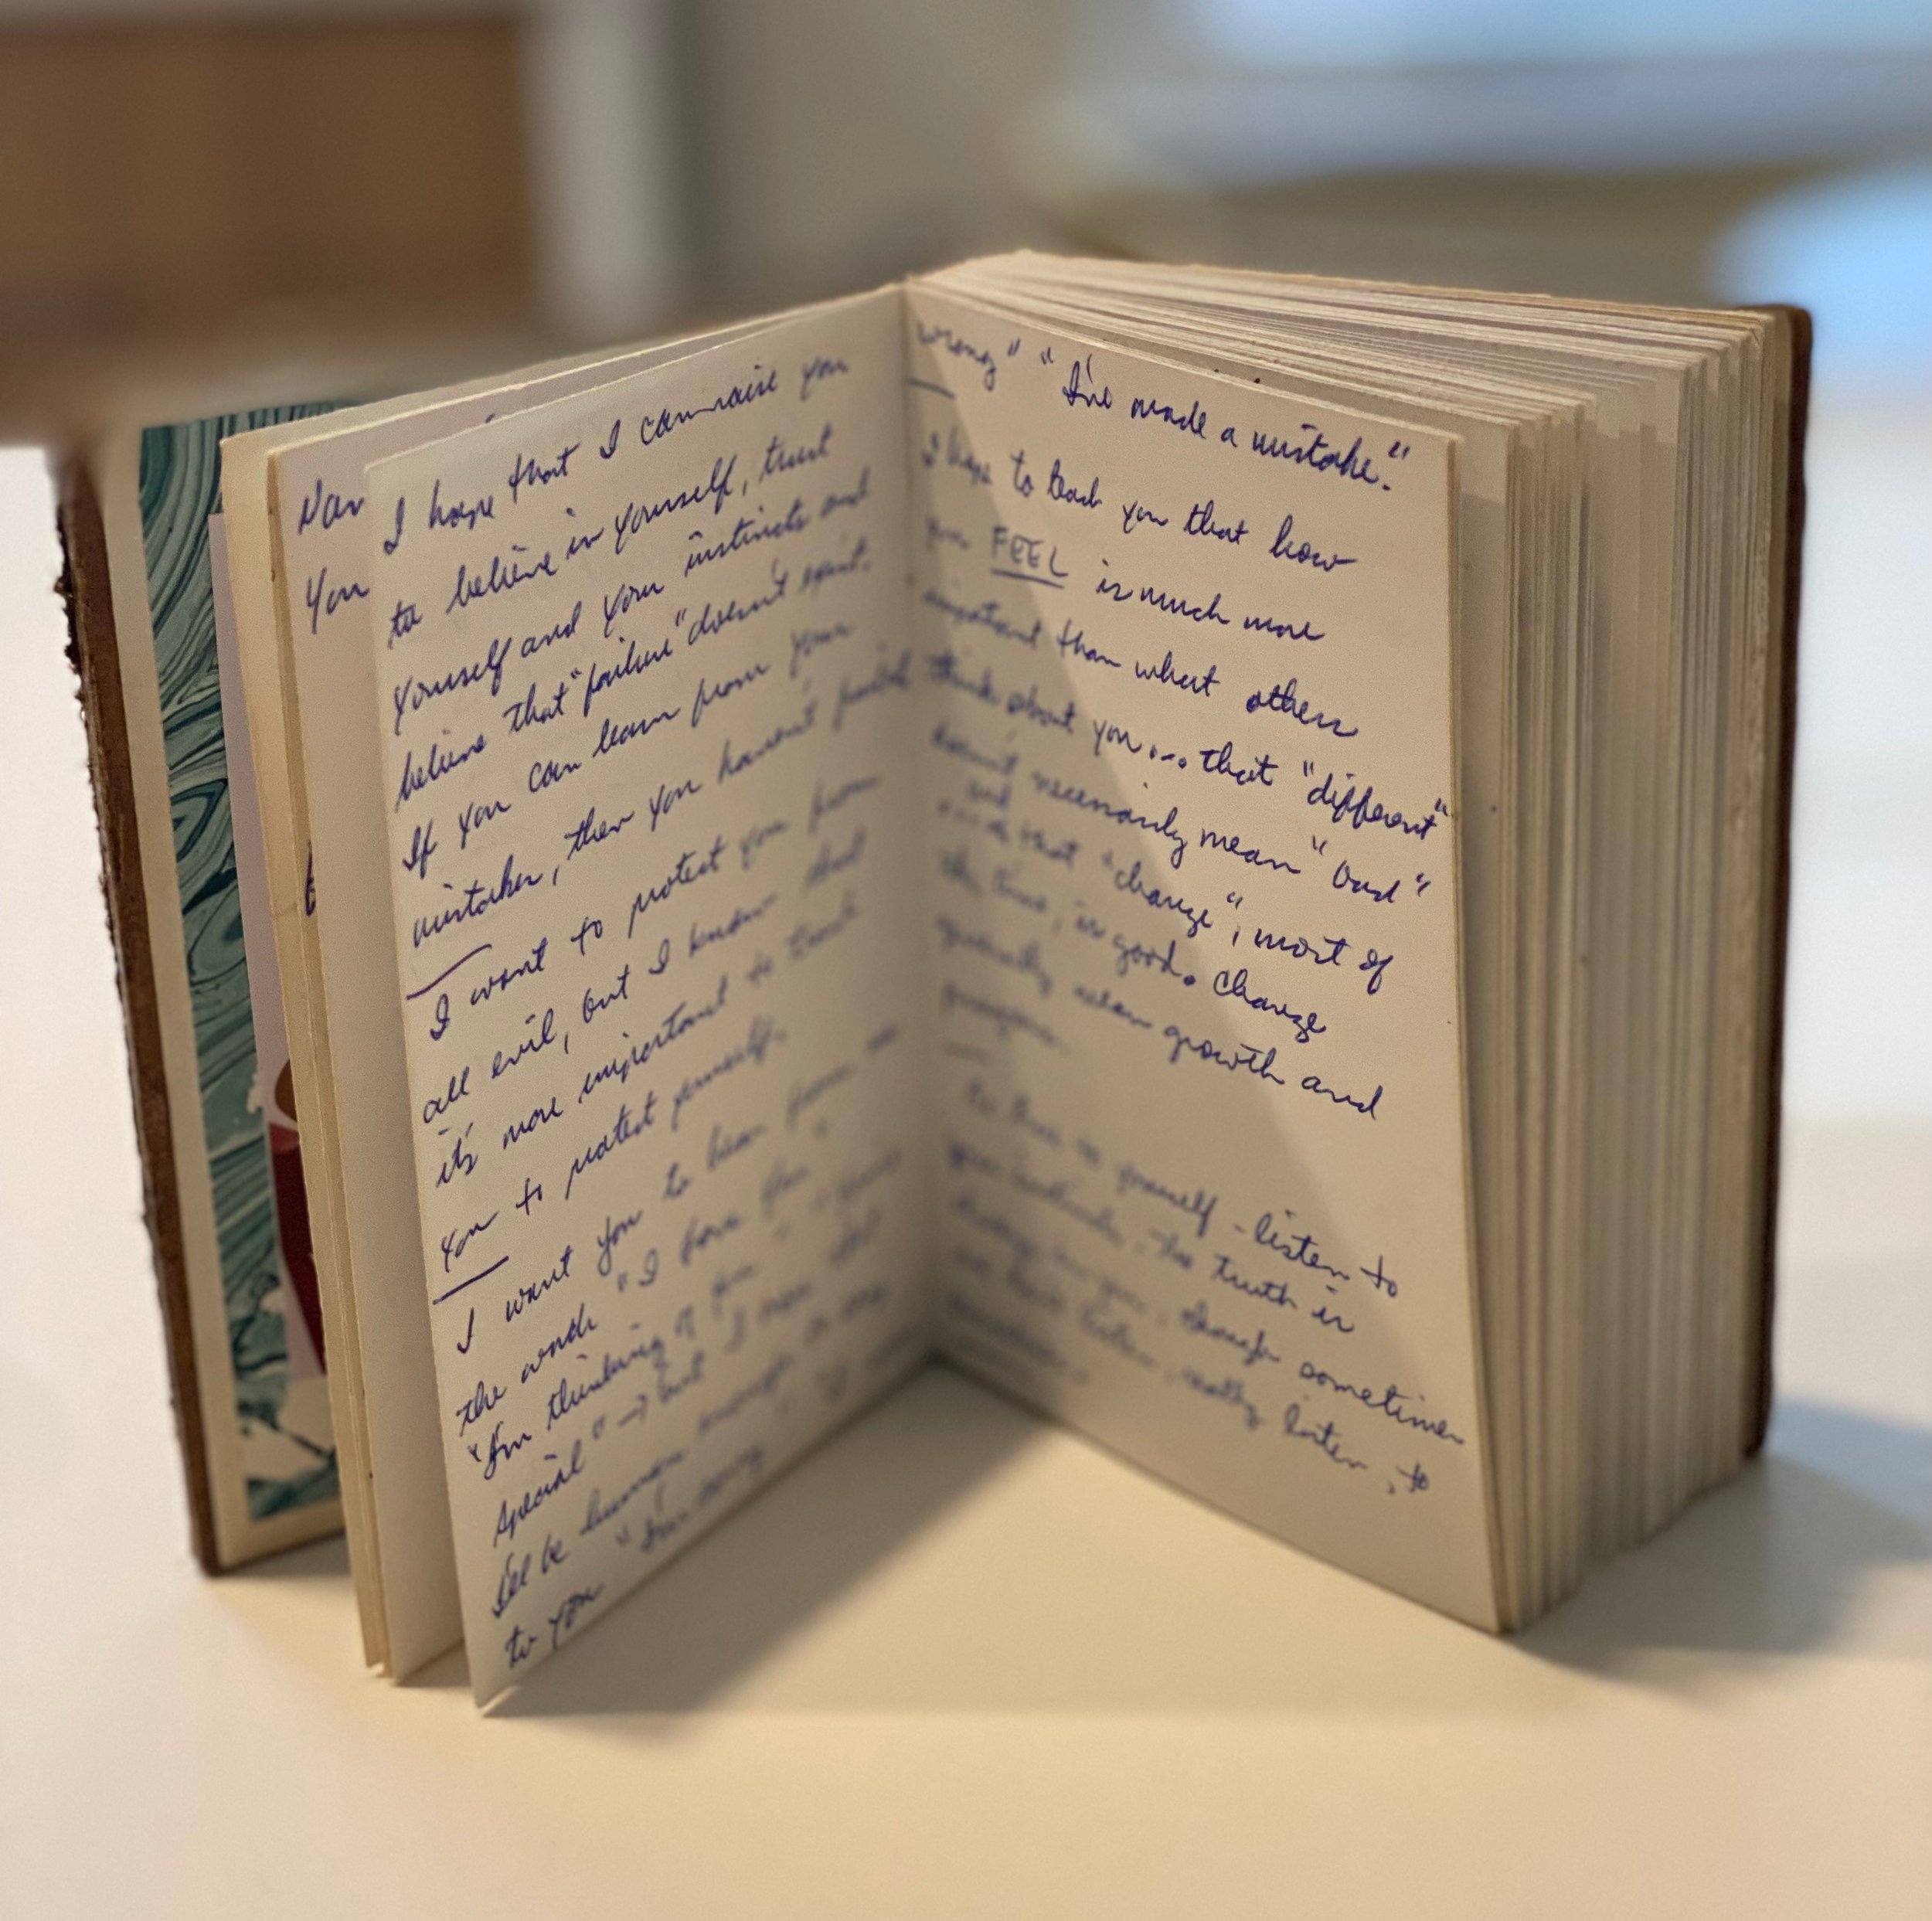 Nav
You
I hope that I can raise you
to believe in yourself, trust
yourself and your instincts and
believe that "failure" doesn't exist.
If you can learn from your
mistakes, then you haven't failed
I want to protect you from
all evil, but I know that
it's more important to teach
you to protect yourself.
I want you to hear from me
the words "I love you"
"I'm thinking of you"
special" → but I hope that
I'll be human enough to say
to you "I'm sorry"
wrong" "I've made a mistake."
I hope to teach you that how
you FEEL is much more
important than what others
think about you... that "different"
doesn't necessarily mean "bad"
and that "change", most of
the time, is good. Change
generally means growth and
to yourself - listen to
the truth is
though sometimes
really listen, to